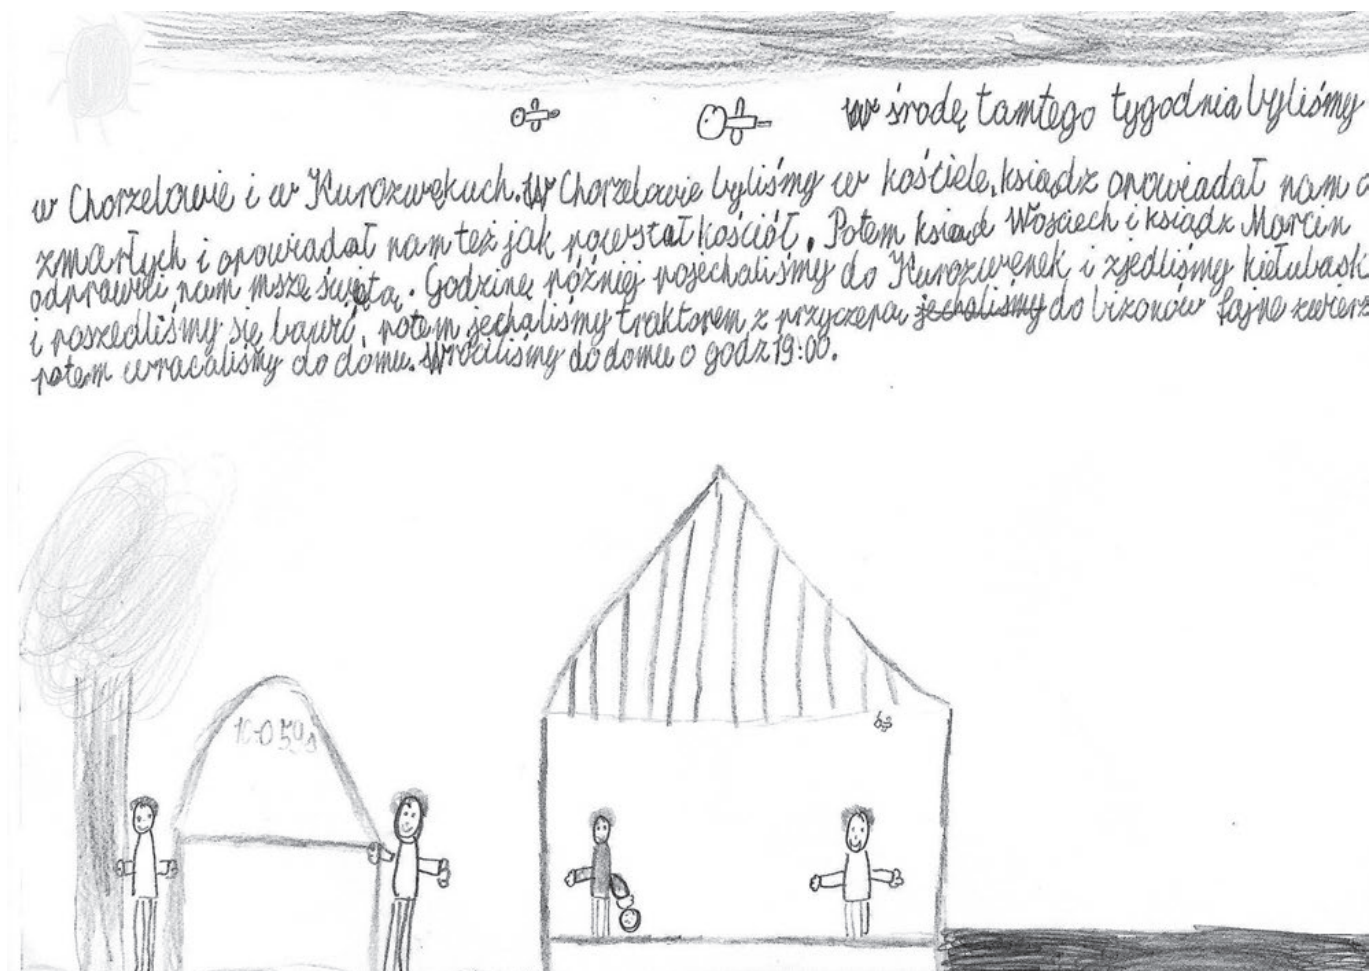 w środę tamtego tygodnia byliśmy
w Chorzelowie i w Kurozwękach. W Chorzelowie byliśmy w kościele, ksiądz opowiadał nam o
zmarłych i opowiadał nam też jak powstał kościół. Potem ksiąd Wojciech i ksiądz Marcin
odprawili nam mszę świętą. Godzinę później pojechaliśmy do Kurozwenek i zjedliśmy kiełubask
i poszedliśmy się bawić, potem jechaliśmy traktorem z przyczepą jechaliśmy do bizonów fajne zwierz
potem wracaliśmy do domu. Wróciliśmy do domu o godz 19:00.